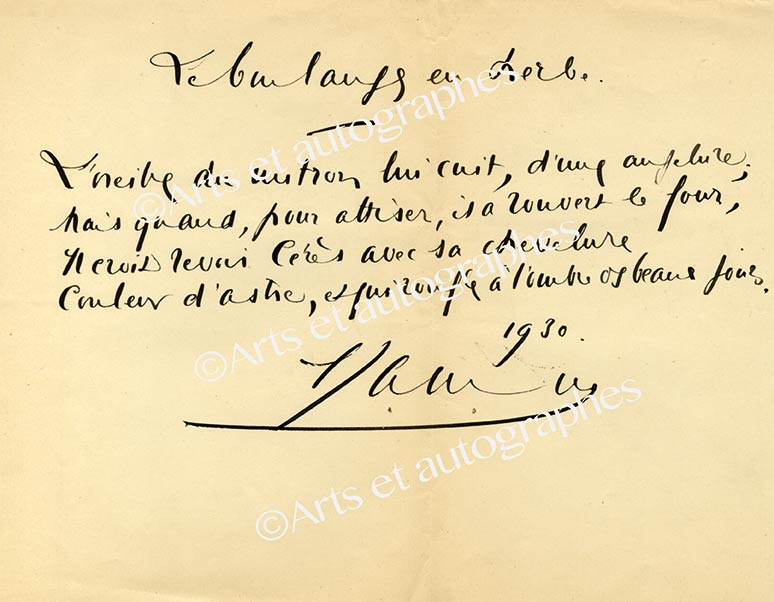 Le boulanger en herbe.
L'oreille du mitron lui cuit, d'une angelure;
Mais quand, pour attiser, il a rouvert le four,
Il croit revoir Cérès avec sa chevelure
Couleur d'astre, et qui ronfle à l'ombre des beaux jours.
1930.
©Arts et autographes
©Arts et autographes
©Arts et autographes